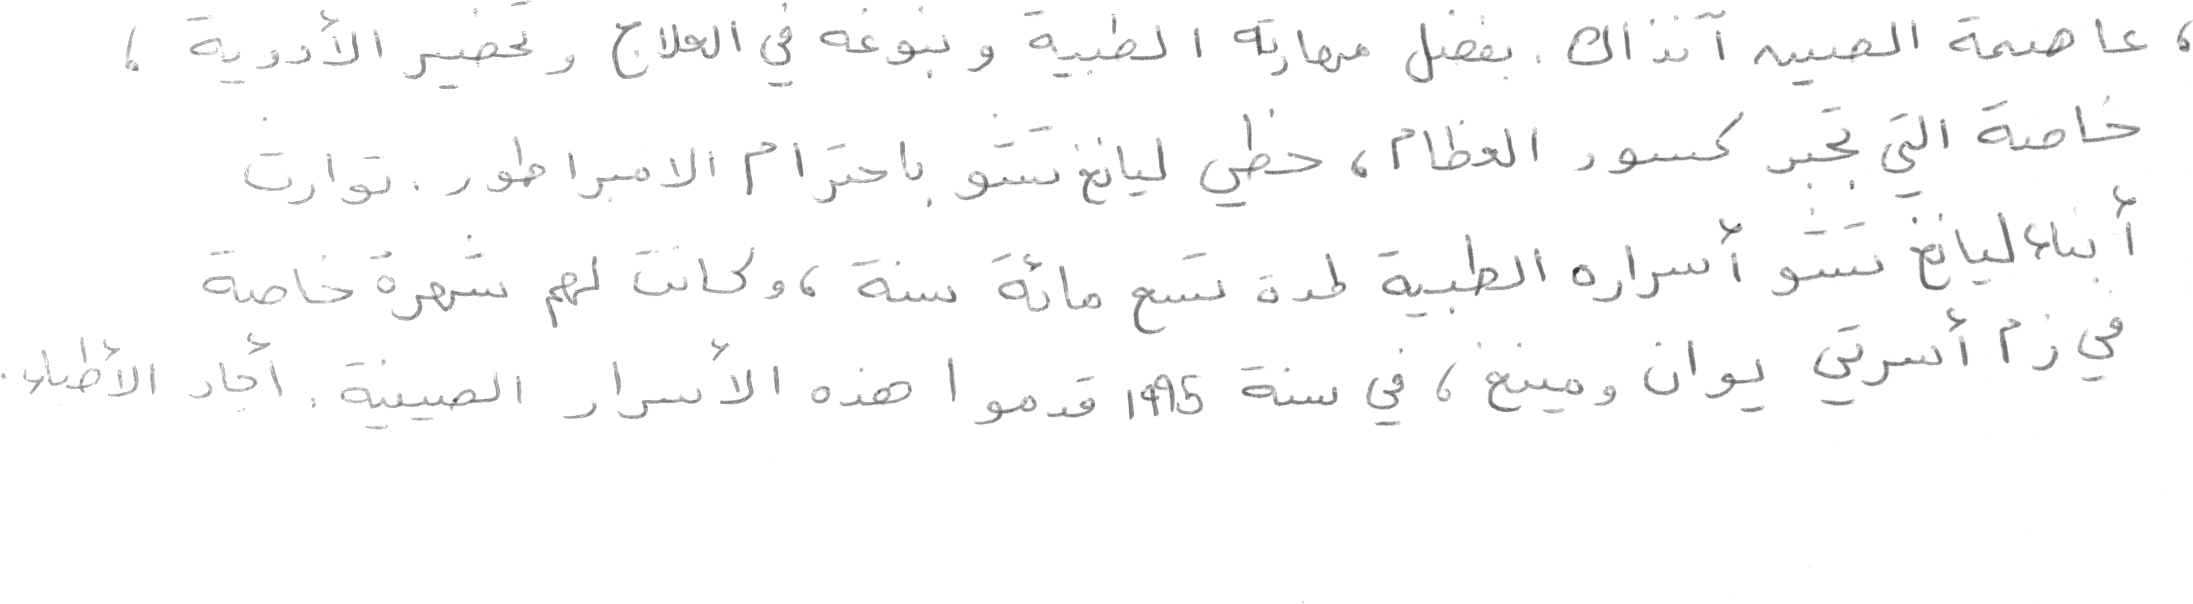 ، عاصمة الصين آنذاك. بفضل مهارته الطبية ونبوغه في العلاج وتحضير الأدوية ،
خاصة التي تجبر كسور العظام ، حظي ليانغ تشو باحترام الامبراطور . توارث
أبناء ليانغ تشو أسراره الطبية لمدة تسع مائة سنة ، وكانت لهم شهرة خاصة
في زم أسرتي يوان ومينغ ، في سنة 1995 قدموا هذه الأسرار الصينية . أجاد الأطباء .